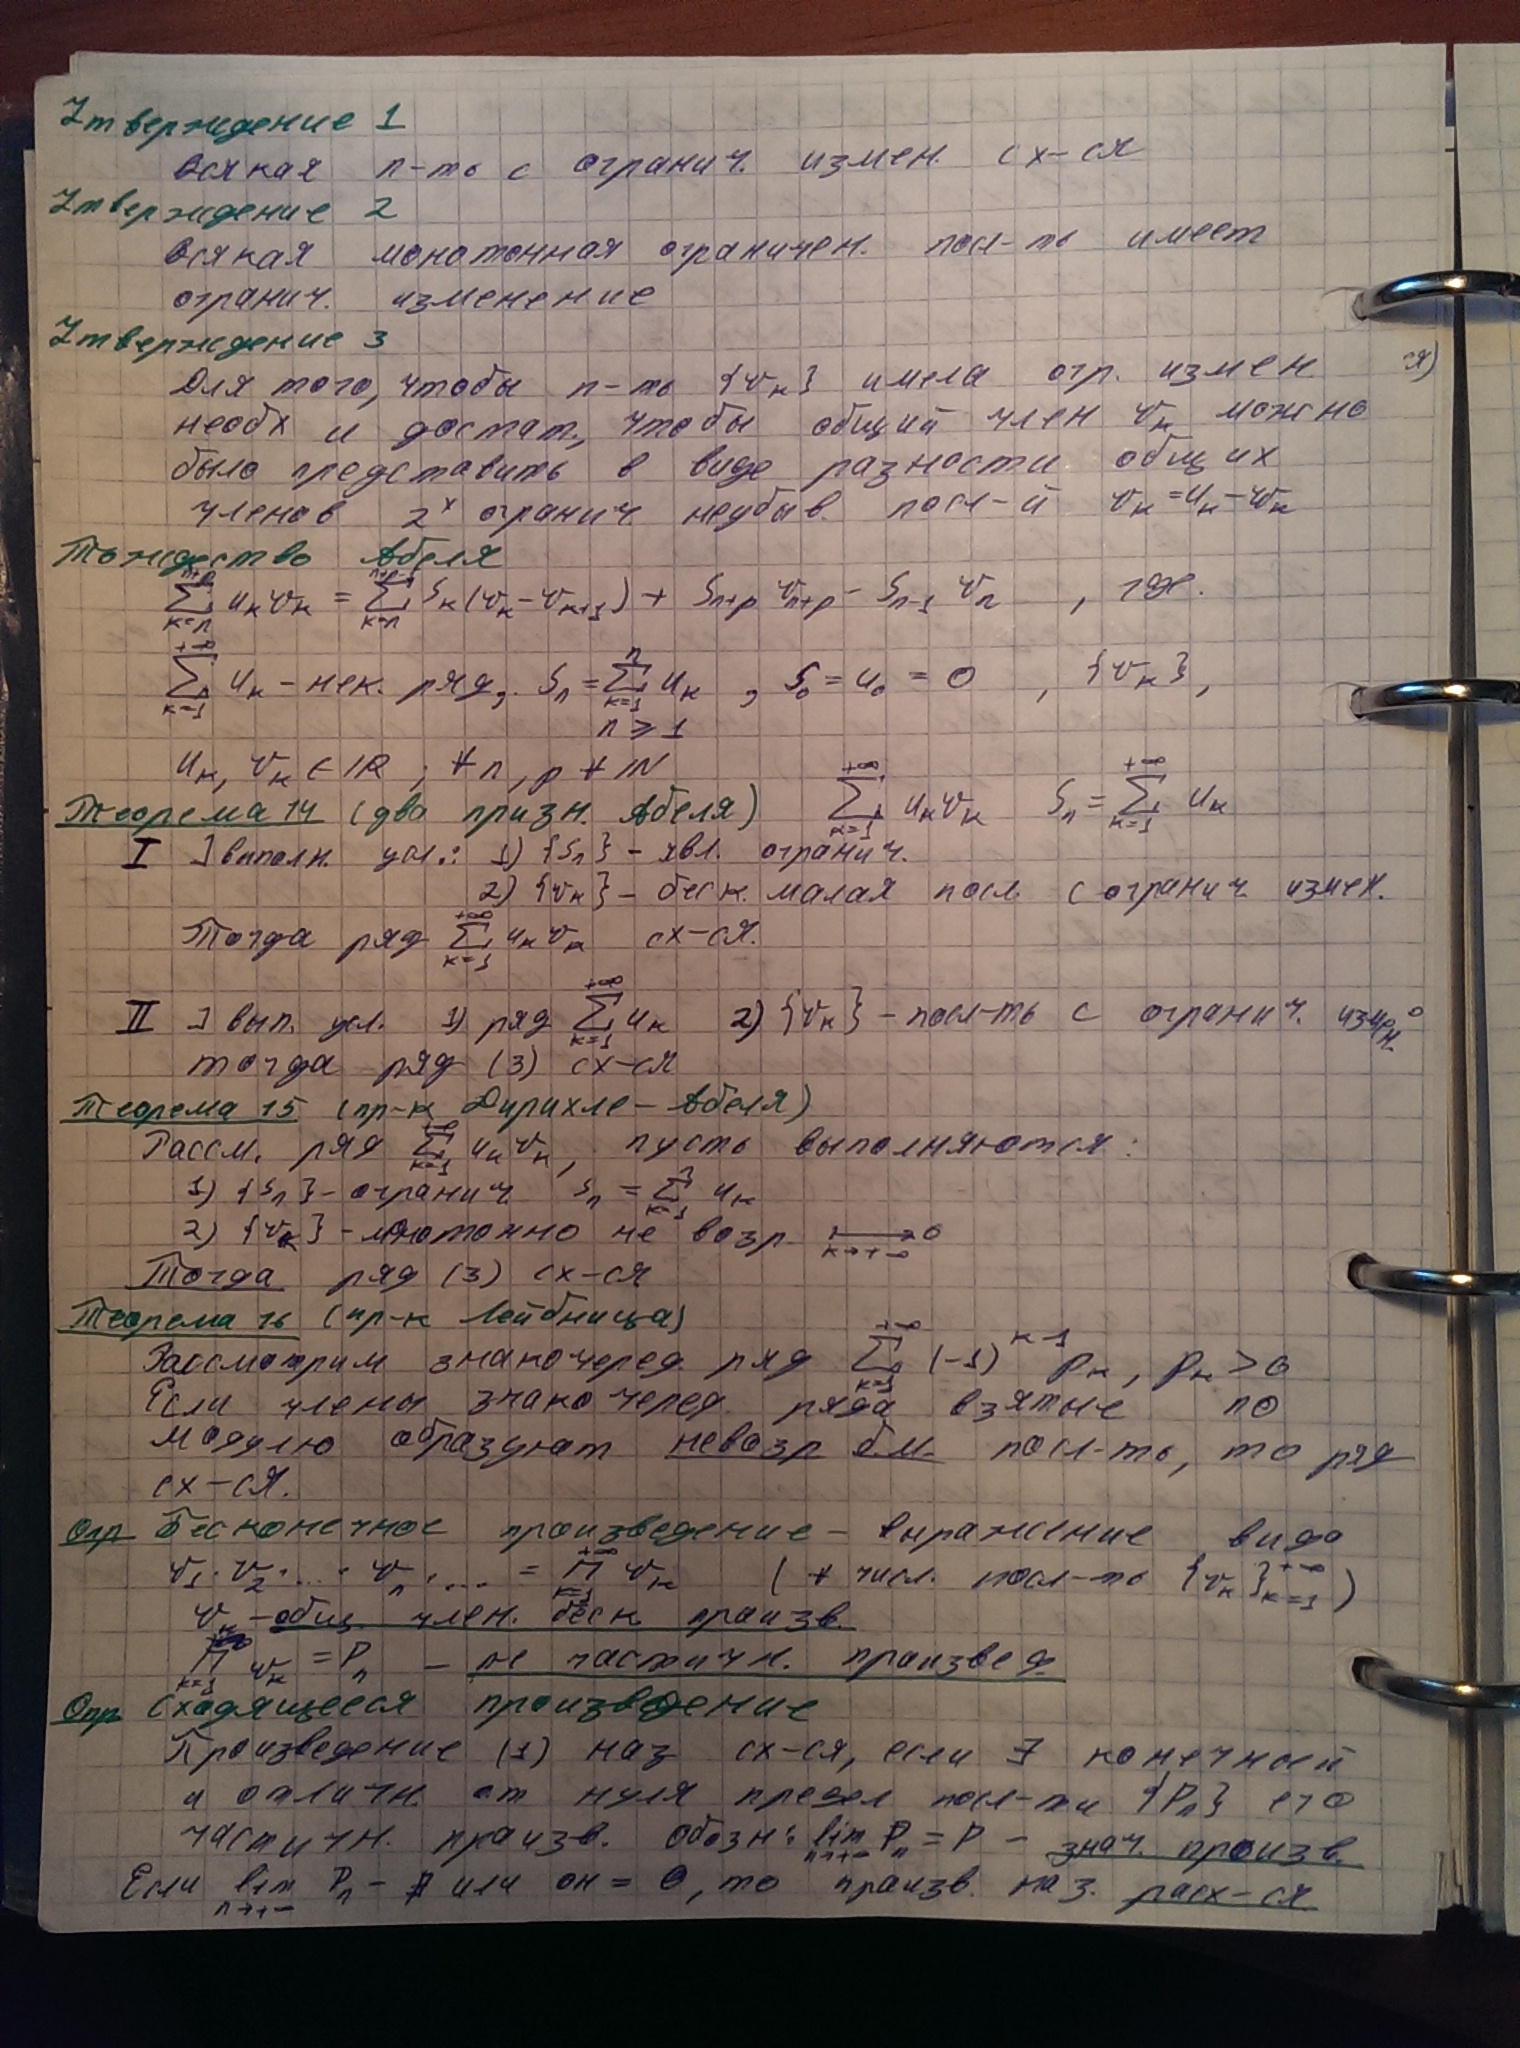 Утверждение 1
Всякая п-ть с огранич. измен. сх-ся
Утверждение 2
Всякая монотонная ограничен. посл-ть имеет
огранич. изменение
Утверждение 3
Для того, чтобы п-ть {v_k} имела огр. измен
необх и достат., чтобы общий член v_k можно
было представить в виде разности общих
членов 2^х огранич. неубыв. посл-й v_k = u_k - w_k
Тождество Абеля
∑_{k=n}^{n+p} u_k v_k = ∑_{k=n}^{n+p-1} S_k (v_k - v_{k+1}) + S_{n+p} v_{n+p} - S_{n-1} v_n , где.
∑_{k=1}^{+∞} u_k - нек. ряд, S_n = ∑_{k=1}^{n} u_k , S_0 = u_0 = 0 , {v_k},
n ⩾ 1
u_k, v_k ∈ ℝ ; ∀ n, p ∀ ℕ
Теорема 14 (два призн. Абеля) ∑_{k=1}^{+∞} u_k v_k S_n = ∑_{k=1}^{+∞} u_k
I ] выполн. усл.: 1) {S_n} - явл. огранич.
2) {v_k} - беск. малая посл. с огранич измен.
Тогда ряд ∑_{k=1}^{+∞} u_k v_k сх-ся.
II ] вып. усл. 1) ряд ∑_{k=1}^{+∞} u_k 2) {v_k} - посл-ть с огранич. измен
тогда ряд (3) сх-ся
Теорема 15 (пр-к Дирихле - Абеля)
Рассм. ряд ∑_{k=1}^{+∞} u_k v_k, пусть выполняются:
1) {S_n} - огранич. S_n = ∑_{k=1}^{n} u_k
2) {v_k} - монотонно не возр. ⟶_{k→+∞} 0
Тогда ряд (3) сх-ся
Теорема 16 (пр-к Лейбница)
Рассмотрим знакочеред. ряд ∑_{k=1}^{+∞} (-1)^{k-1} p_k, p_k > 0
Если члены знакочеред. ряда взятые по
модулю образуют невозр б.м. посл-ть, то ряд
сх-ся.
Опр Бесконечное произведение - выражение вида
v_1 · v_2 · ... · v_n · ... = ∏_{k=1}^{+∞} v_k ( ∀ числ. посл-ть {v_k}_{k=1}^{+∞} )
v_k - общ. член. беск произв.
∏_{k=1} v_k = P_n - не частичн. произвед.
Опр Сходящееся произведение
Произведение (1) наз сх-ся, если ∃ конечный
и отличн. от нуля предел посл-ти {P_n} его
частичн. произв. Обозн: lim_{n→+∞} P_n = P - знач. произв.
Если lim_{n→+∞} P_n - ∄ или он = 0, то произв. наз. расх-ся